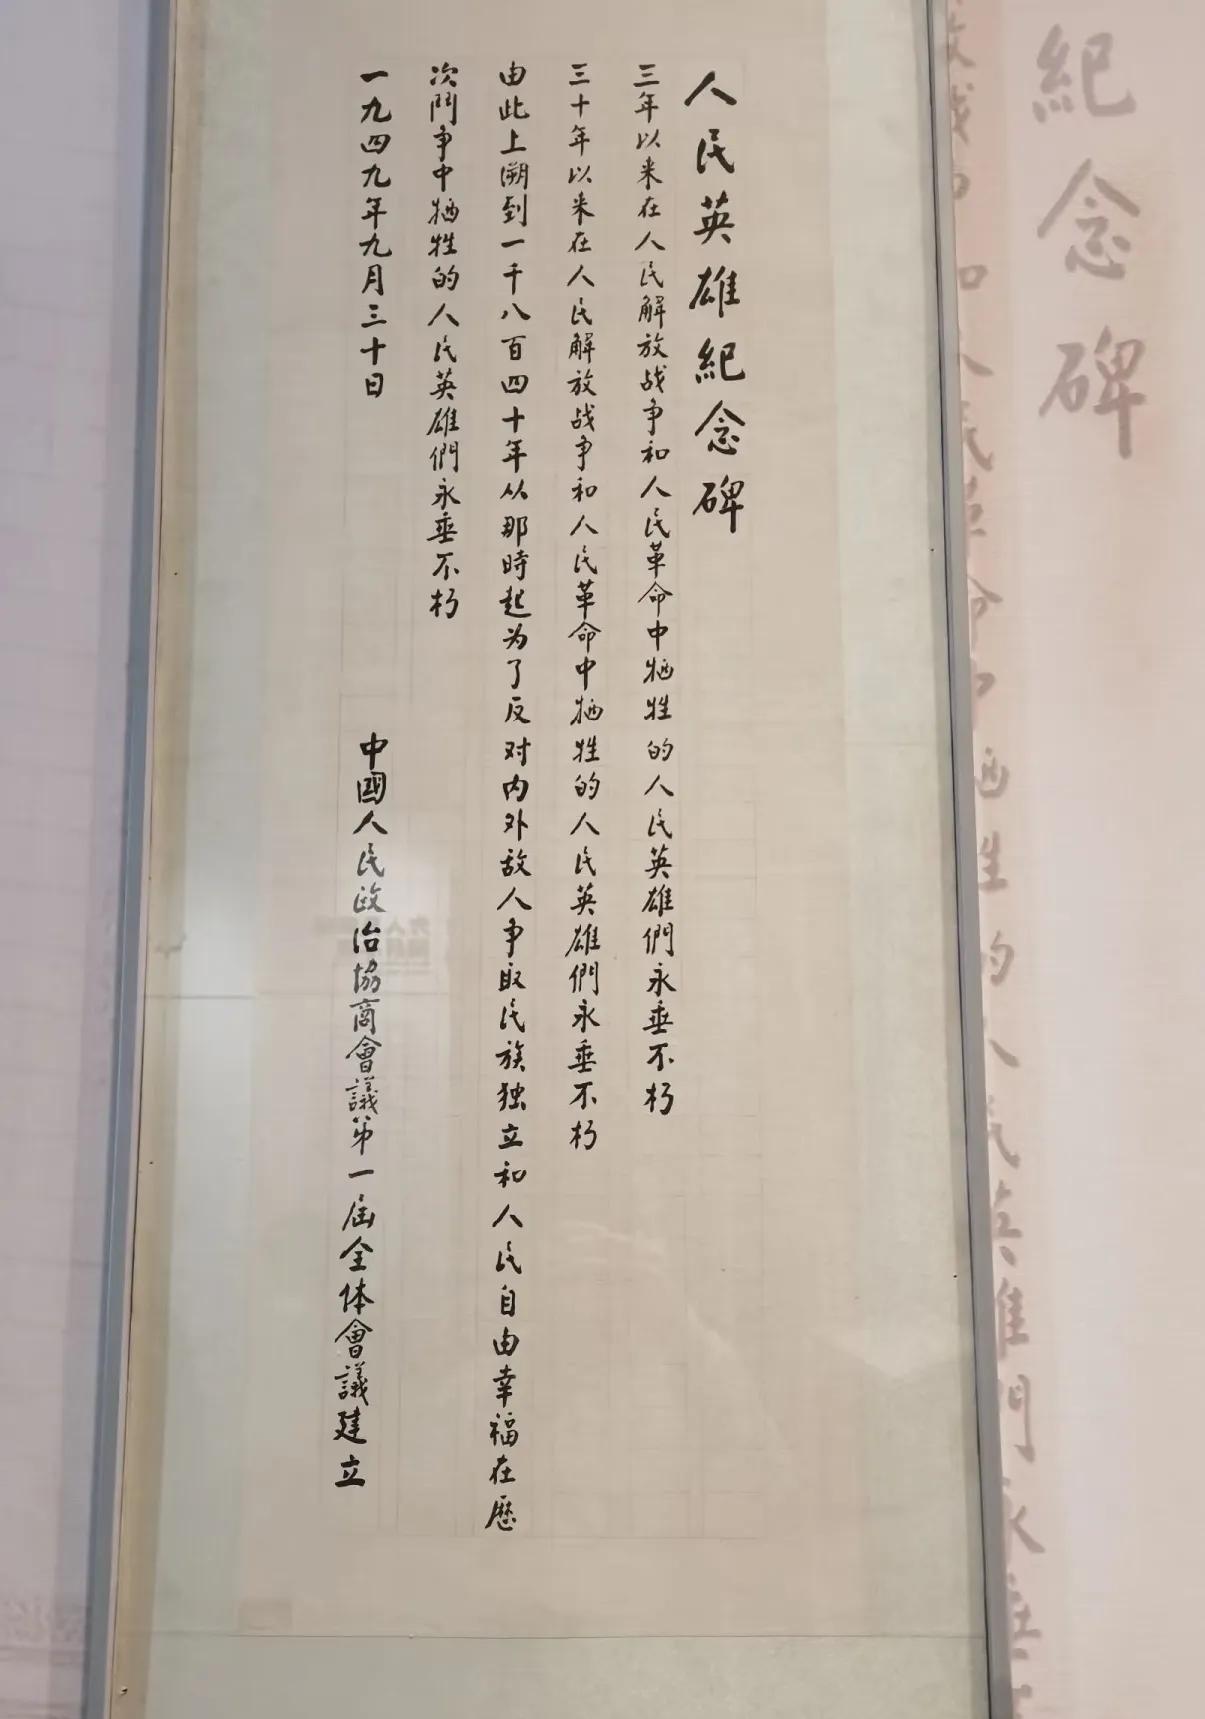 人民英雄紀念碑
三年以来在人民解放战争和人民革命中牺牲的人民英雄們永垂不朽
三十年以来在人民解放战争和人民革命中牺牲的人民英雄們永垂不朽
由此上溯到一千八百四十年从那时起为了反对内外敌人争取民族独立和人民自由幸福在歷
次鬥争中牺牲的人民英雄們永垂不朽
一九四九年九月三十日
中國人民政治協商會議第一届全体會議建立
紀念碑
和人民革命中牺牲的人民英雄們永垂